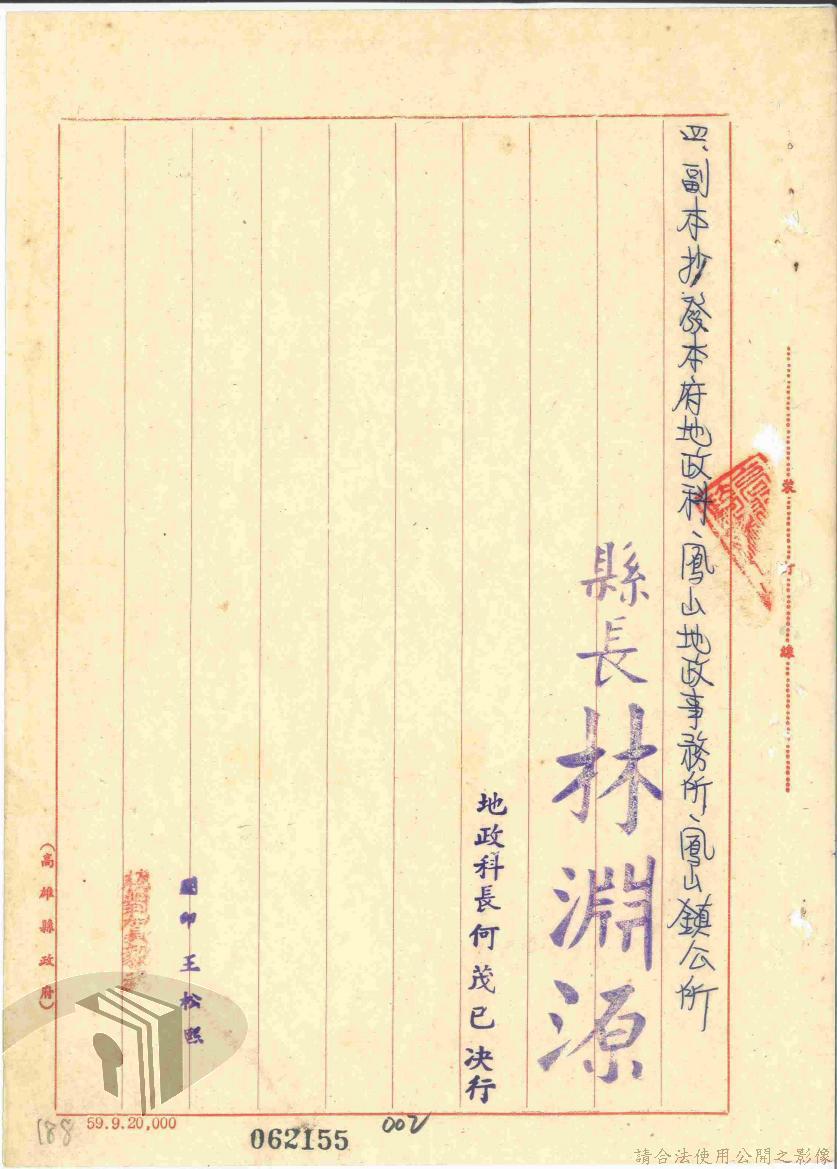 四、副本抄發本府地政科、鳳山地政事務所、鳳山鎮公所
裝
訂
線
縣長林淵源
地政科長何茂已決行
監印王松熙
(高雄縣政府)
188
59.9.20,000
062155
002
請合法使用公開之影像